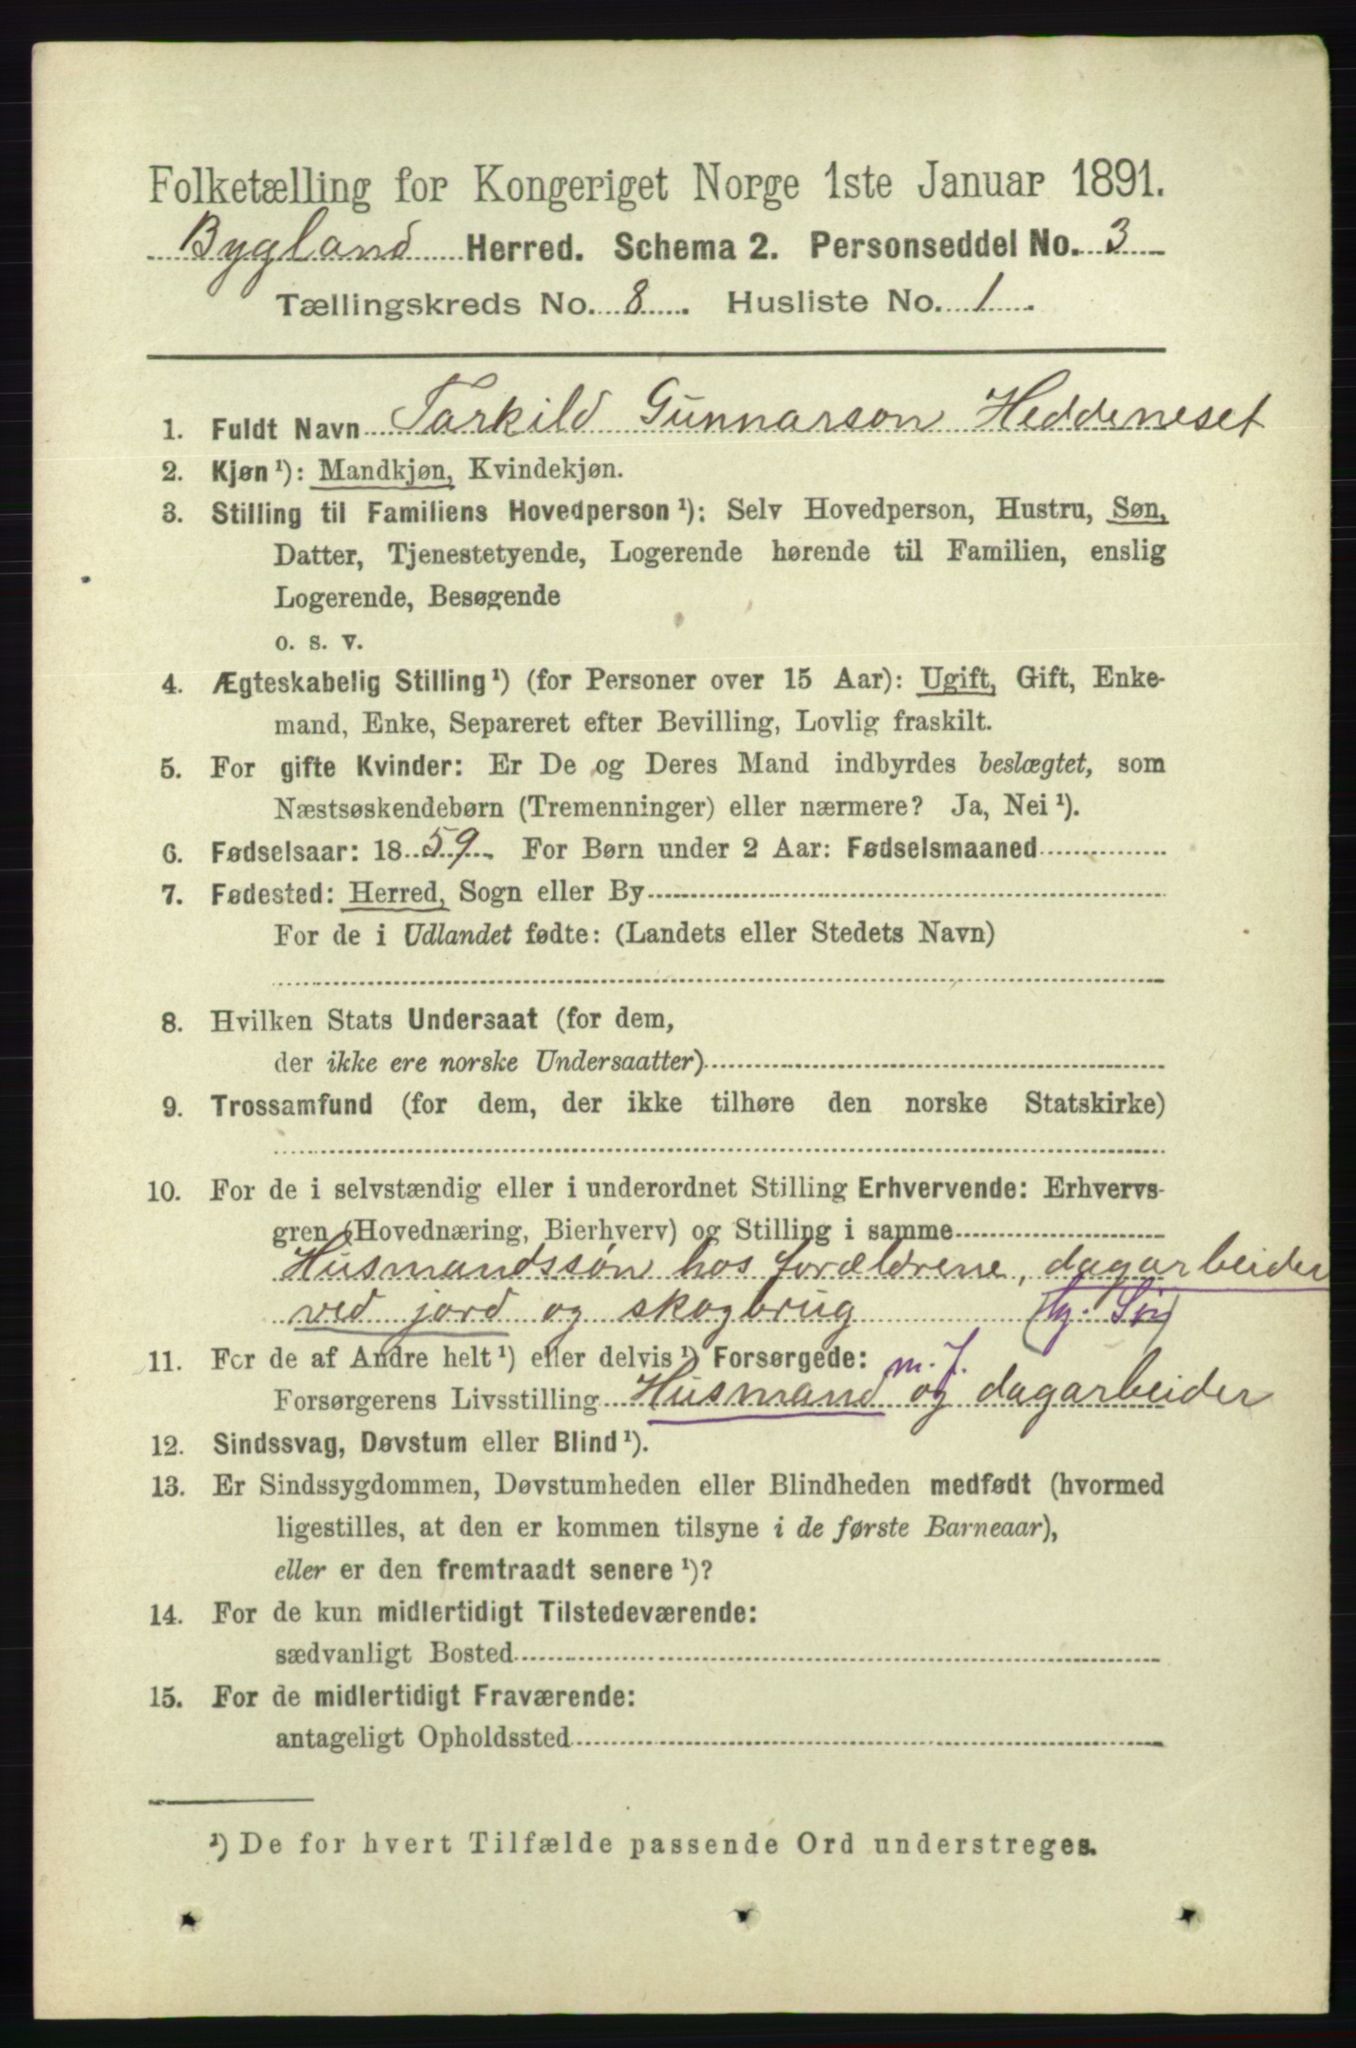 Folketælling for Kongeriget Norge 1ste Januar 1891.
Bygland Herred. Schema 2. Personseddel No. 3
Tællingskreds No. 8. Husliste No. 1.
1. Fuldt Navn Tarkild Gunnarson Heddeneset
2. Kjøn ¹): Mandkjøn, Kvindekjøn.
3. Stilling til Familiens Hovedperson ¹): Selv Hovedperson, Hustru, Søn,
Datter, Tjenestetyende, Logerende hørende til Familien, enslig
Logerende, Besøgende
o. s. v.
4. Ægteskabelig Stilling ¹) (for Personer over 15 Aar): Ugift, Gift, Enke-
mand, Enke, Separeret efter Bevilling, Lovlig fraskilt.
5. For gifte Kvinder: Er De og Deres Mand indbyrdes beslægtet, som
Næstsøskendebørn (Tremenninger) eller nærmere? Ja, Nei ¹).
6. Fødselsaar: 1859. For Børn under 2 Aar: Fødselsmaaned
7. Fødested: Herred, Sogn eller By
For de i Udlandet fødte: (Landets eller Stedets Navn)
8. Hvilken Stats Undersaat (for dem,
der ikke ere norske Undersaatter)
9. Trossamfund (for dem, der ikke tilhøre den norske Statskirke)
10. For de i selvstændig eller i underordnet Stilling Erhvervende: Erhvervs-
gren (Hovednæring, Bierhverv) og Stilling i samme
Husmandssøn hos forældrene, dagarbeider
ved jord og skogbrug (hj. Søn)
11. For de af Andre helt ¹) eller delvis ¹) Forsørgede: m. J.
Forsørgerens Livsstilling Husmand og dagarbeider
12. Sindssvag, Døvstum eller Blind ¹).
13. Er Sindssygdommen, Døvstumheden eller Blindheden medfødt (hvormed
ligestilles, at den er kommen tilsyne i de første Barneaar),
eller er den fremtraadt senere ¹)?
14. For de kun midlertidigt Tilstedeværende:
sædvanligt Bosted
15. For de midlertidigt Fraværende:
antageligt Opholdssted
¹) De for hvert Tilfælde passende Ord understreges.